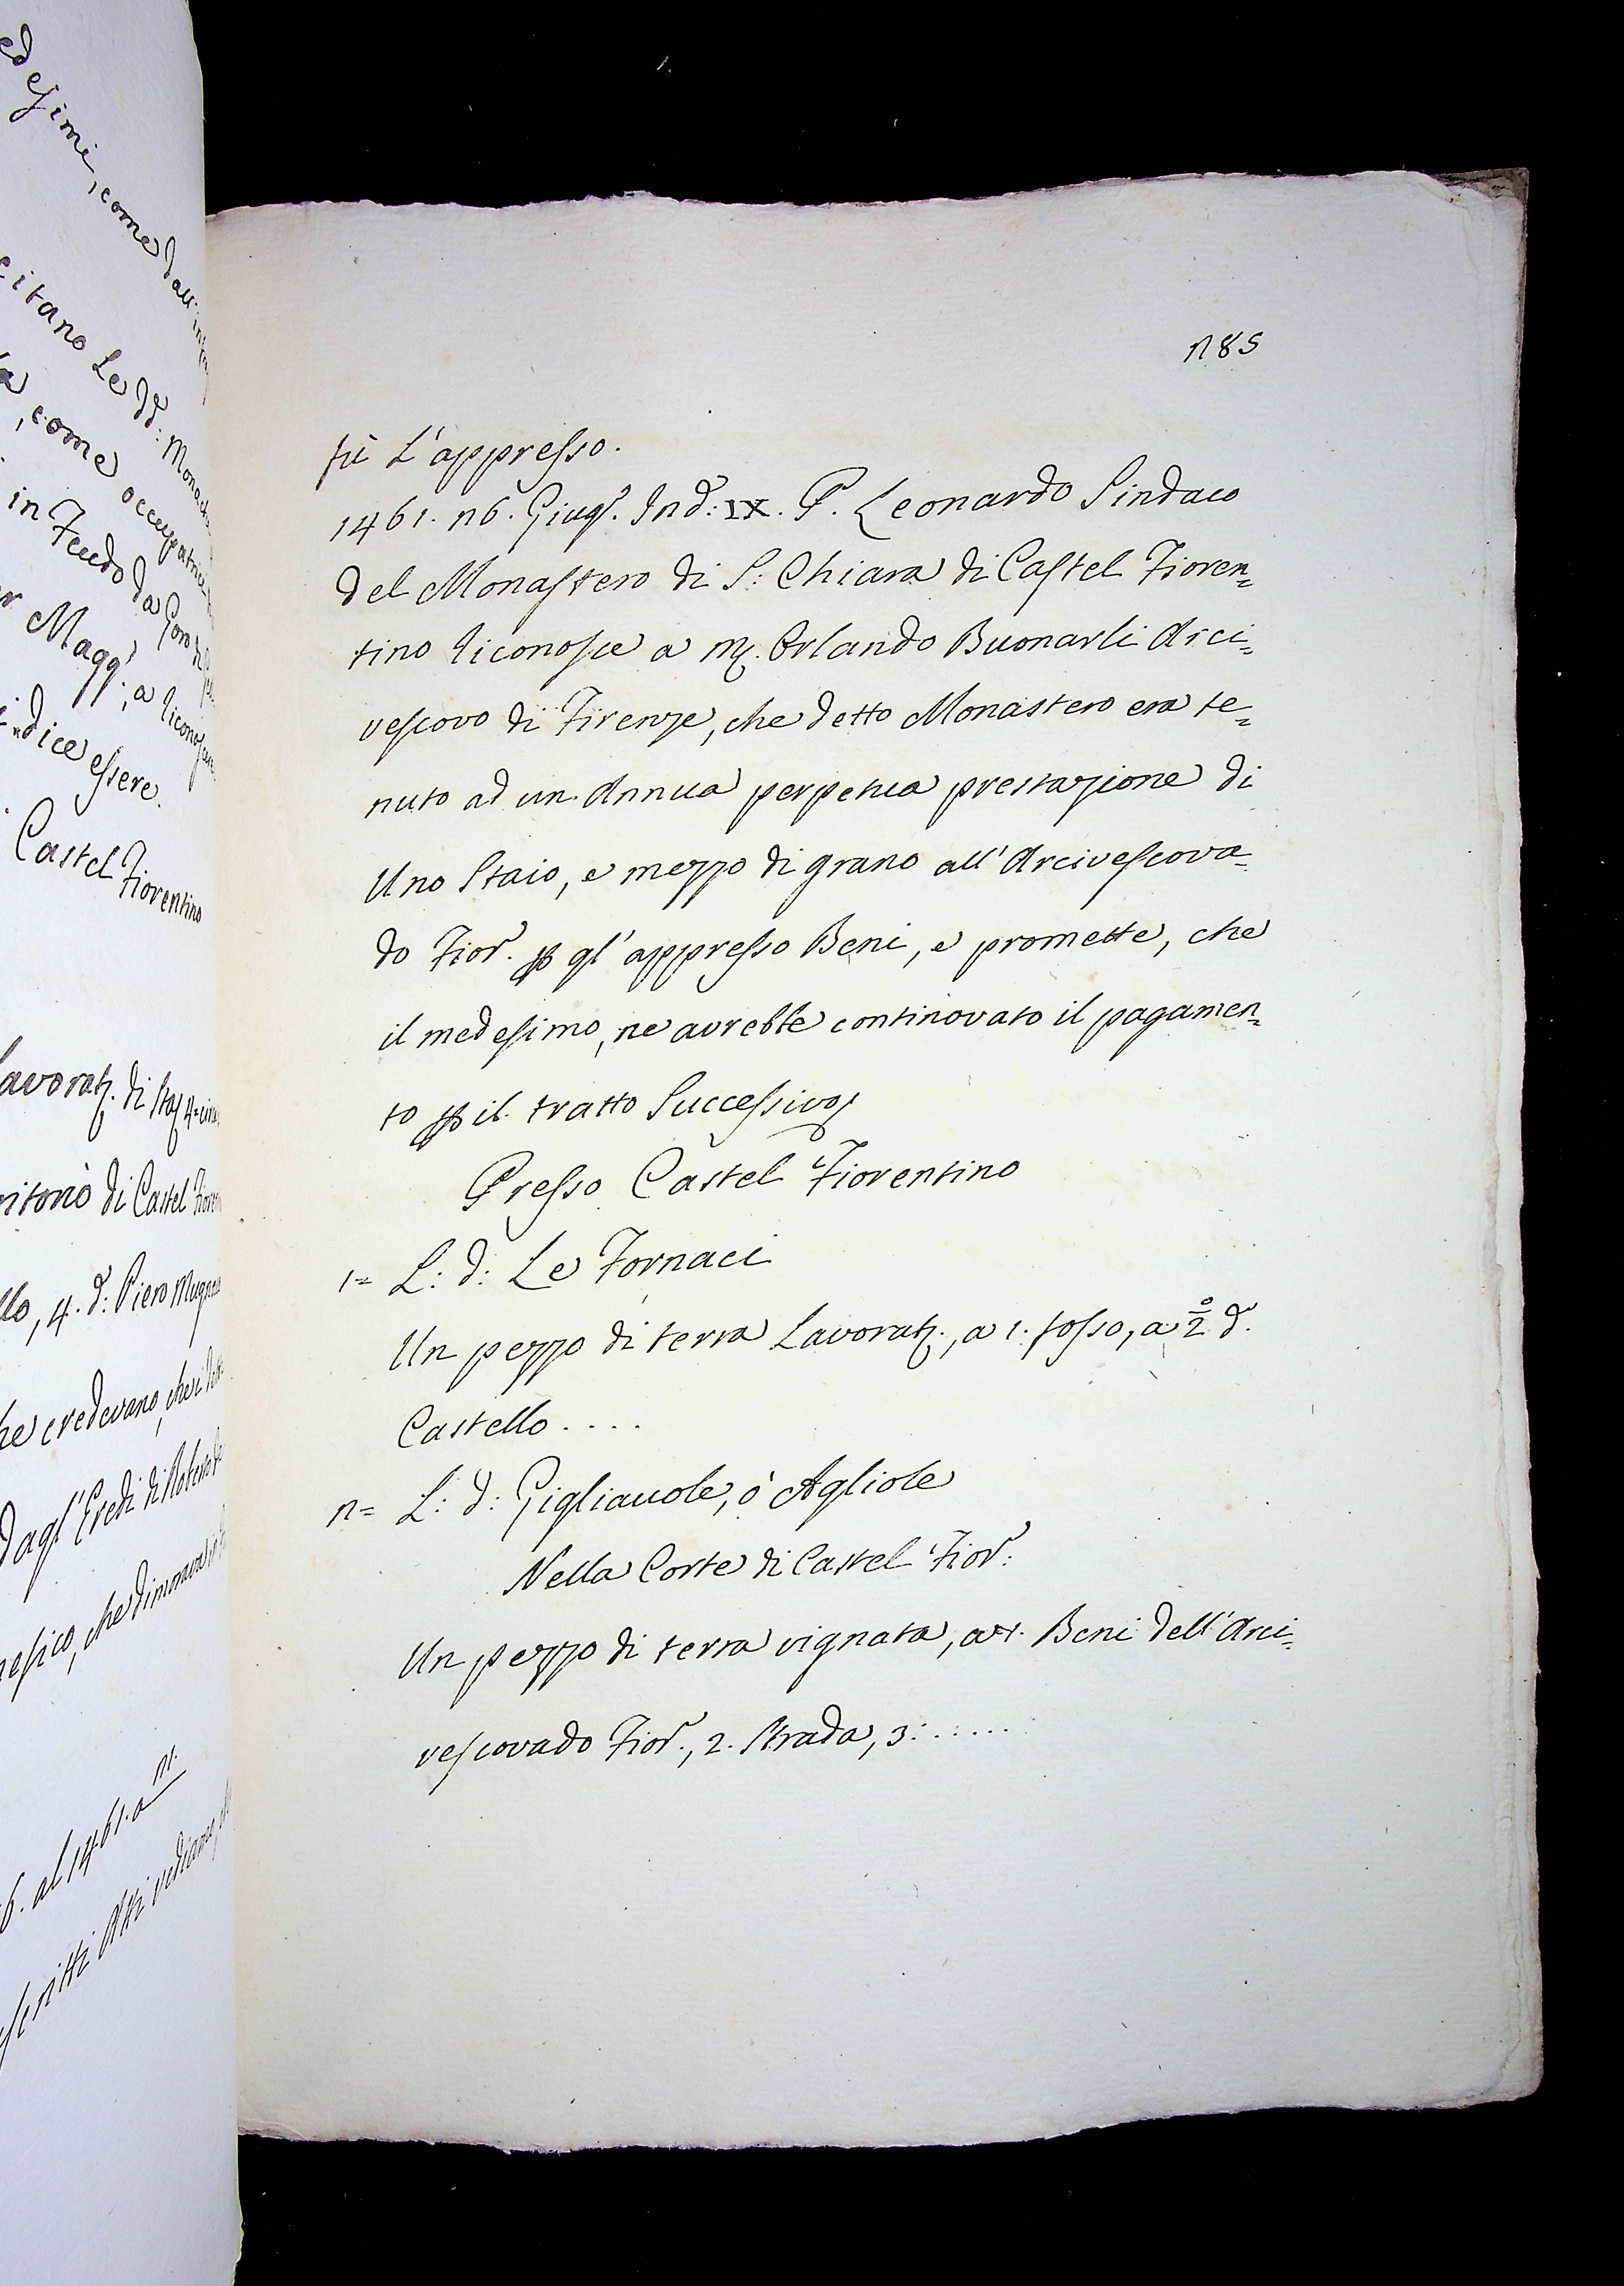 edesimi, come dall'
citano Le dd: Monach
, come occupatric
in Feudo da Goro
Magg; a riconoscer
dice essere
Castel Fiorentino
Lavorat. di Staj 4
ritorio di Castel Fioren
llo, 4. d: Piero Mugna
he credevano, che i
Dagl' Eredi di
nesico, che dimorava
6. al 1461. a
scritti Atti vediamo,
285
fù L'appresso.
1461. 26. Giug. Ind: IX. P. Leonardo Sindaco
del Monastero di S: Chiara di Castel Fioren=
tino riconosce a M. Orlando Buonarli Arci=
vescovo di Firenze, che detto Monastero era te=
nuto ad un. Annua perpetua prestazione di
Uno Staio, e mezzo di grano all' Arcivescova=
do Fior. p gl' appresso Beni, e promette, che
il medesimo, ne avrebbe continovato il pagamen=
to p il tratto Successivo
Presso Castel Fiorentino
1= L: d: Le Fornaci
Un pezzo di terra Lavorat., a 1. fosso, a 2º d.
Castello . . . .
2= L: d: Gigliauole, ò Agliole
Nella Corte di Castel Fior:
Un pezzo di terra vignata, a 1. Beni dell' Arci=
vescovado Fior., 2. Strada, 3: . . . . .